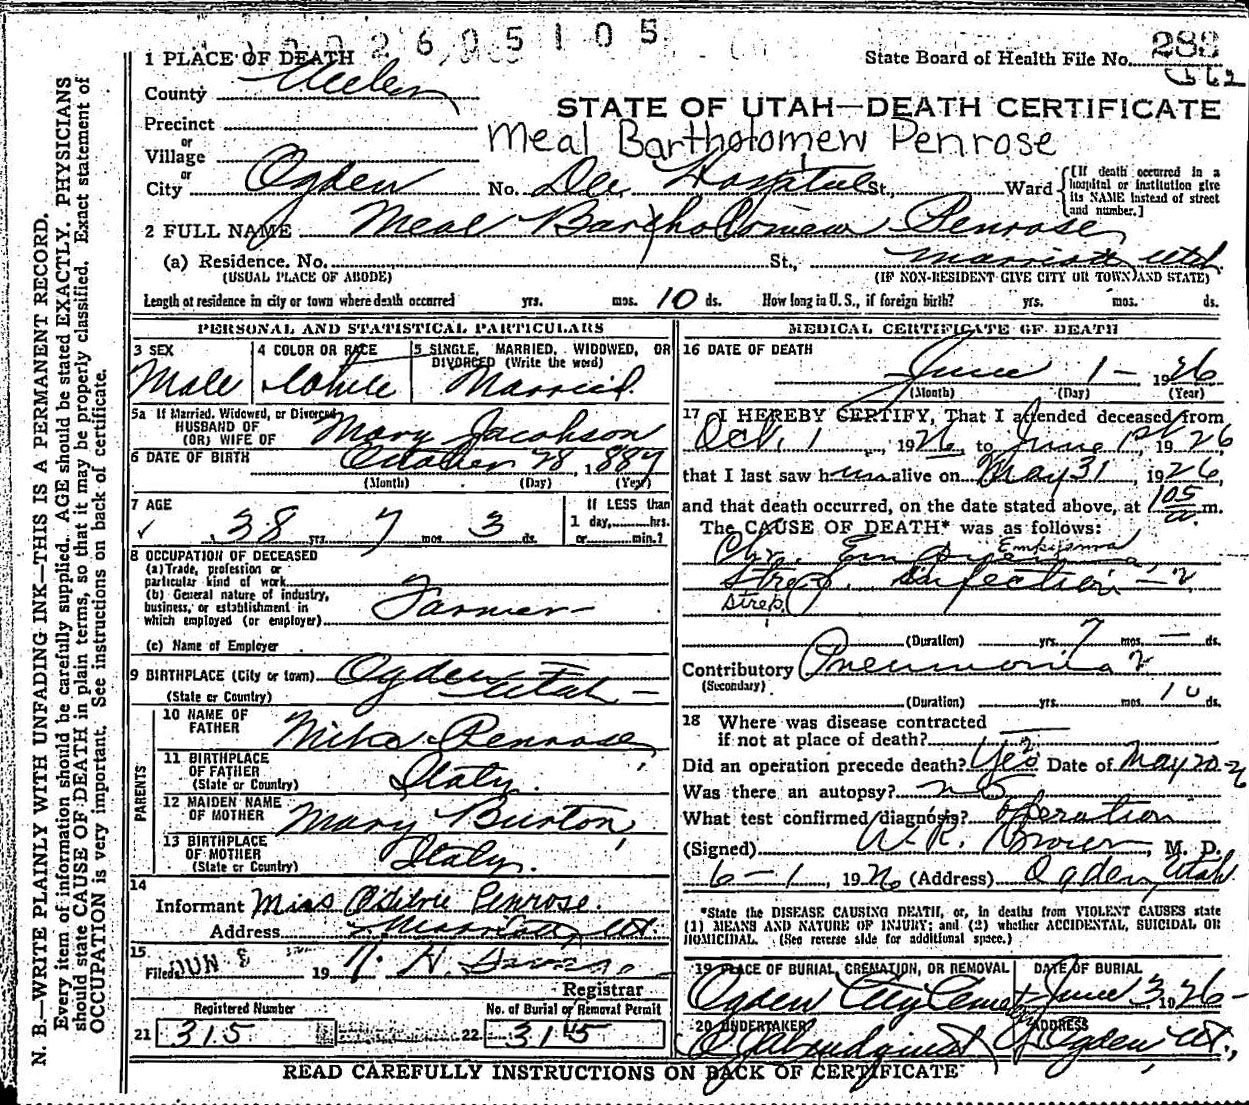 1002605105
1 PLACE OF DEATH
State Board of Health File No. 283
County Weber
STATE OF UTAH—DEATH CERTIFICATE
Precinct
Meal Bartholomew Penrose
or
Village
or
City Ogden No. Dee Hospital St., Ward {[If death occurred in a hospital or institution give its NAME instead of street and number.]
2 FULL NAME Meal Bartholomew Penrose
(a) Residence. No. St., Marriott Utah
(USUAL PLACE OF ABODE) (IF NON-RESIDENT GIVE CITY OR TOWN AND STATE)
Length of residence in city or town where death occurred yrs. mos. 10 ds. How long in U. S., if foreign birth? yrs. mos. ds.
PERSONAL AND STATISTICAL PARTICULARS
3 SEX Male
4 COLOR OR RACE White
5 SINGLE, MARRIED, WIDOWED, OR DIVORCED (Write the word) Married
5a If Married, Widowed, or Divorced
HUSBAND OF
(OR) WIFE OF Mary Jacobson
6 DATE OF BIRTH October 28, 1887
(Month) (Day) (Year)
7 AGE 38 yrs. 7 mos. 3 ds.
If LESS than
1 day, hrs.
or min.?
8 OCCUPATION OF DECEASED
(a) Trade, profession or
particular kind of work
(b) General nature of industry,
business, or establishment in
which employed (or employer) Farmer
(c) Name of Employer
9 BIRTHPLACE (City or town) Ogden
(State or Country) Utah
PARENTS
10 NAME OF
FATHER Mike Penrose
11 BIRTHPLACE
OF FATHER
(State or Country) Italy
12 MAIDEN NAME
OF MOTHER Mary Burton
13 BIRTHPLACE
OF MOTHER
(State or Country) Italy
14
Informant Miss Penrose.
Address
15
Filed JUN 8 19 H.
Registrar
Registered Number No. of Burial or Removal Permit
21 315 22 3145
MEDICAL CERTIFICATE OF DEATH
16 DATE OF DEATH
June 1 - 1926
(Month) (Day) (Year)
17 I HEREBY CERTIFY, That I attended deceased from
Oct. 1, 1926, to June 1st, 1926
that I last saw him alive on May 31, 1926,
and that death occurred, on the date stated above, at 105 a. m.
The CAUSE OF DEATH* was as follows:
Chr.
Strep. Infection
Strep.
(Duration) yrs. 7 mos. — ds.
Contributory Pneumonia
(Secondary)
(Duration) yrs. mos. 10 ds.
18 Where was disease contracted
if not at place of death?
Did an operation precede death? Yes Date of May 20-26
Was there an autopsy? no
What test confirmed diagnosis? Operation
(Signed) W. R. , M. D.
6-1, 1926 (Address) Ogden, Utah
*State the DISEASE CAUSING DEATH, or, in deaths from VIOLENT CAUSES state
(1) MEANS AND NATURE OF INJURY; and (2) whether ACCIDENTAL, SUICIDAL OR
HOMICIDAL. (See reverse side for additional space.)
19 PLACE OF BURIAL, CREMATION, OR REMOVAL DATE OF BURIAL
Ogden City June 3, 1926-
20 UNDERTAKER ADDRESS
Ogden Ut.,
READ CAREFULLY INSTRUCTIONS ON BACK OF CERTIFICATE
N. B.—WRITE PLAINLY WITH UNFADING INK—THIS IS A PERMANENT RECORD.
Every item of information should be carefully supplied. AGE should be stated EXACTLY. PHYSICIANS
should state CAUSE OF DEATH in plain terms, so that it may be properly classified. Exact statement of
OCCUPATION is very important. See instructions on back of certificate.